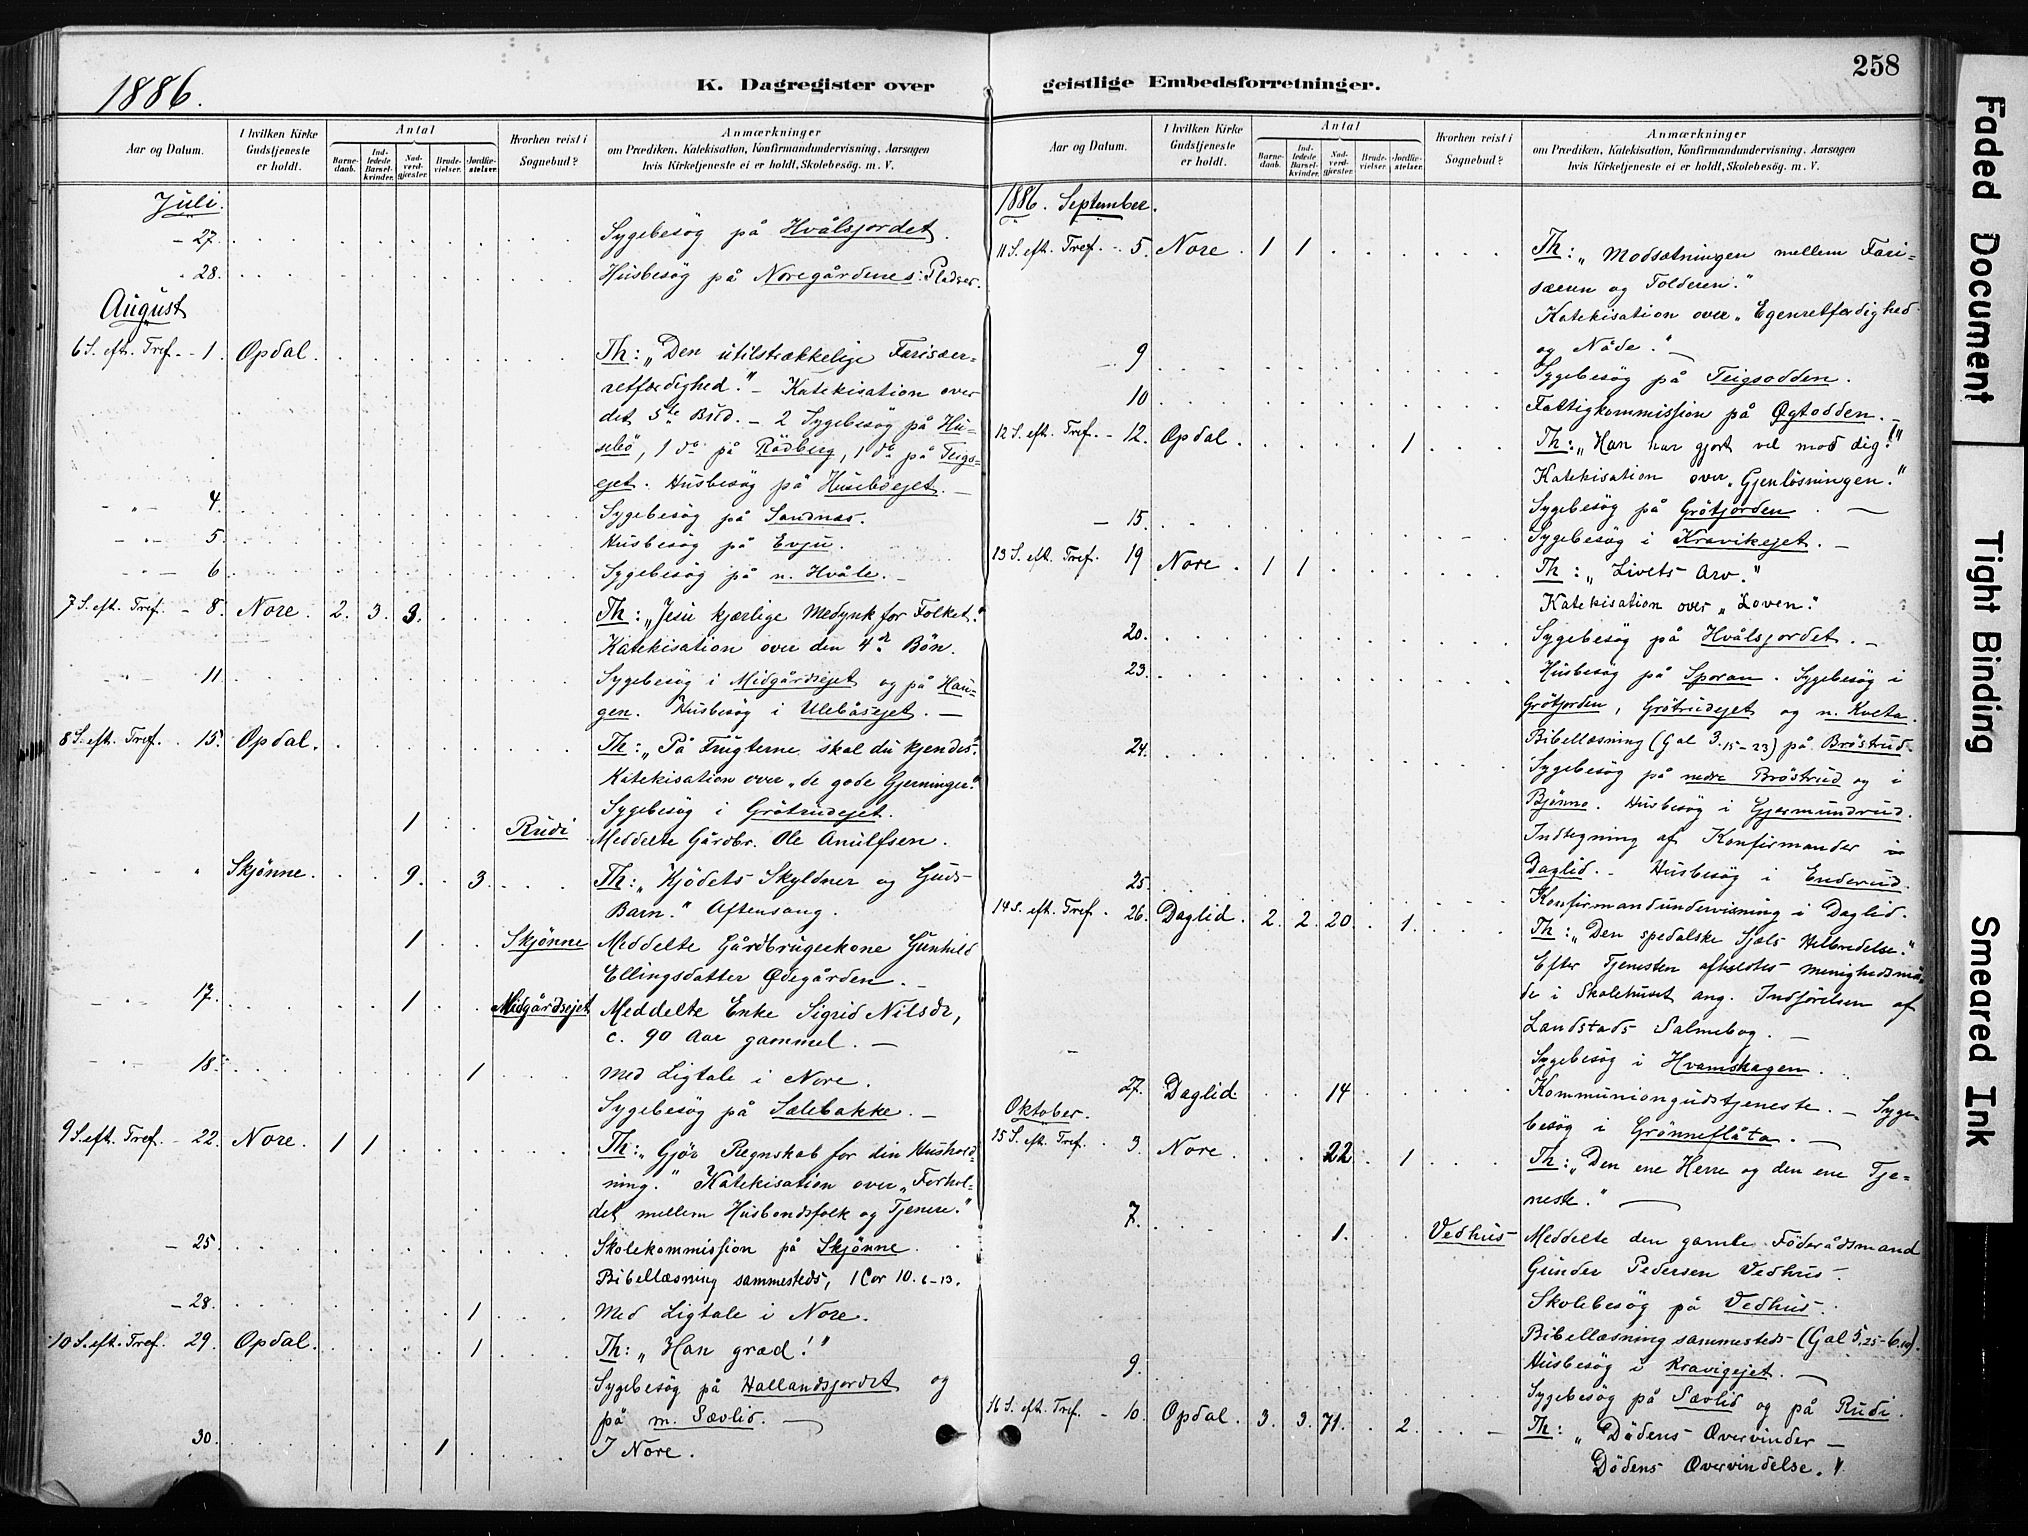 1886.
K. Dagregister over
geistlige Embedsforretninger.
258
Aar og Datum.
I hvilken Kirke Gudstjeneste er holdt.
Antal
Barnedaab.
Indledede Barselkvinder.
Nadverdgjester.
Brudevielser.
Jordfæstelser.
Hvorhen reist i Sognebud?
Anmærkninger
om Prædiken, Katekisation, Konfirmandundervisning. Aarsagen
hvis Kirketjeneste ei er holdt, Skolebesög. m. V.
Juli.
- 27. Sygebesøg på Hvålsjordet.
" 28. Husbesøg på Noregårdenes Pladser.
August
6 S. eft. Tref. - 1. Opdal. Th: „Den utilstrækkelige Farisæer-
retfærdighed." - Katekisation over
det 5te Bud. - 2 Sygebesøg på Hu-
sebö, 1 do på Rödberg, 1 do på Teigs-
ejet. Husbesøg på Huseböejet. -
- " - 4. Sygebesøg på Sandnæs.
- " - 5. Husbesøg på Evju.
- " - 6. Sygebesøg på n. Hvåle. -
7 S. eft. Tref. - 8. Nore. 2. 3. 3. Th: „Jesu kjærlige Medynk for Folket."
Katekisation over den 4de Bön.
- " 11. Sygebesøg i Midgårdsejet og på Hau-
gen. Husbesøg i Ulebåsejet. -
8 S. eft. Tref. - 15. Opdal. Th: „På Frugterne skal du kjendes."
Katekisation over „de gode Gjerninger."
Sygebesøg i Grötrudejet.
1 Rudi Meddelte Gårdbr. Ole Arnulfsen.
" Skjønne. 9. 3. Th: „Kjödets Skyldner og Guds
Barn." Aftensang.
1 Skjønne Meddelte Gårdbrugerkone Gunhild
Ellingsdatter Ødegården. -
- " 17. 1 Midgårdsejet Meddelte Enke Sigrid Nilsdr,
c. 90 Aar gammel. -
- " 18. 1 Med Ligtale i Nore.
Sygebesøg på Sælebakke. -
9 S. eft. Tref. - 22. Nore. 1 1 Th: „Gjör Regnskab for din Hushold-
ning." Katekisation over „Forhol-
det mellem Husbondsfolk og Tjenere."
- 25. Skolekommission på Skjønne.
Bibellæsning sammesteds, 1 Cor 10. 6-13.
- 28. 1 Med Ligtale i Nore.
10 S. eft. Tref. 29. Opdal. 1 Th: „Han græd!"
Sygebesøg på Hallandsjordet og
på m. Sævlid. -
30. 1 I Nore.
Aar og Datum.
I hvilken Kirke Gudstjeneste er holdt.
Antal
Barnedaab.
Indledede Barselkvinder.
Nadverdgjester.
Brudevielser.
Jordfæstelser.
Hvorhen reist i Sognebud?
Anmærkninger
om Prædiken, Katekisation, Konfirmandundervisning. Aarsagen
hvis Kirketjeneste ei er holdt, Skolebesög. m. V.
1886. September.
11 S. eft. Tref. - 5. Nore. 1 1 Th: „Modsætningen mellem Fari-
sæeren og Tolderen."
Katekisation over „Egenretfærdighed
og Nåde." -
9 Sygebesøg på Teigsodden.
10 Fattigkommission på Øgtodden. -
12 S. eft. Tref. - 12. Opdal. 1 Th: „Han har gjort vel mod dig!"
Katekisation over „Gjenlösningen."
- 15. Sygebesøg på Grötjorden. -
Sygebesøg i Kravikejet. -
13 S. eft. Tref. 19 Nore. 1 1 Th: „Livets Arv."
Katekisation over „Loven."
20. Sygebesøg på Hvålsjordet. -
23. Husbesøg på Sporan. Sygebesøg i
Grötjorden, Grötrudejet og n. Kveta.
24. Bibellæsning (Gal 3. 15-23) på Bröstrud.
Sygebesøg på nedre Bröstrud og i
Bjönno. Husbesøg i Gjermundrud.
Indtegning af Konfirmander i
Daglid. - Husbesøg i Enderud.
25. Konfirmandundervisning i Daglid.
14 S. eft. Tref. - 26. Daglid. 2. 2. 20. 1. Th: „Den spedalske Sjæls Helbredelse."
Efter Tjenesten afholdtes Menighedsmö-
de i Skolehuset ang. Indförelsen af
Landstads Salmebog. -
- Sygebesøg i Hvamshagen.
27. Daglid. 14 Kommuniongudstjeneste. - Syge-
besøg i Grønneflåta. -
Oktober.
15 S. eft. Tref. - 3. Nore. 22. 1 Th: „Den ene Herre og den ene Tje-
neste." -
7. 1. Vedhus Meddelte den gamle Föderådsmand
Gunder Pedersen Vedhus.
Skolebesøg på Vedhus.
Bibellæsning sammesteds (Gal 5, 25-6, 10).
9. Husbesøg i Kravigejet. -
Sygebesøg på Sævlid og på Rudi.
16 S. eft. Tref. - 10. Opdal. 3. 3. 71. 2. Th: „Dödens Overvinder -
Dödens Overvindelse."
Faded Document
Tight Binding
Smeared Ink